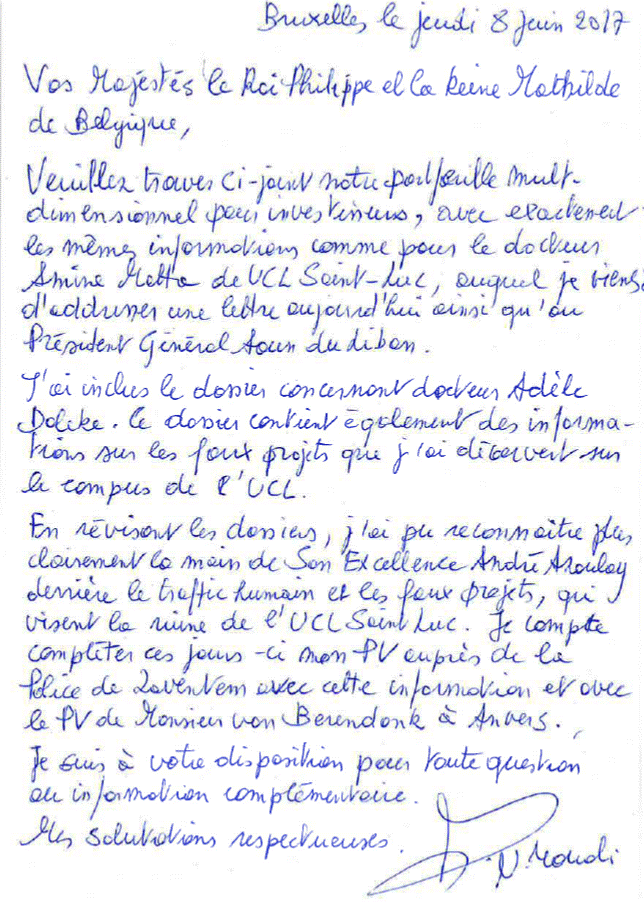 Bruxelles le jeudi 8 juin 2017
Vos Majestés le Roi Philippe et la Reine Mathilde
de Belgique,
Veuillez trouver ci-joint notre portfeuille mult-
dimensionnel pour investisseurs, avec exactement
les mêmes informations comme pour le docteur
Amine Matta de UCL Saint-Luc, auquel je viens
d'addresser une lettre aujourd'hui ainsi qu'au
Président Général Aoun du Liban.
J'ai inclus le dossier concernant docteur Adèle
Doleke. Le dossier contient également des informa-
tions sur les faux projets que j'ai découvert sur
le campus de l'UCL.
En révisant les dossiers, j'ai pu reconnaître plus
clairement la main de Son Excellence André Azoulay
derrière le traffic humain et les faux projets, qui
visent la ruine de l'UCL Saint Luc. Je compte
compléter ces jours-ci mon PV auprès de la
Police de Zaventem avec cette information et avec
le PV de Monsieur van Berendonk à Anvers.
Je suis à votre disposition pour toute question
ou information complémentaire.
Mes salutations respectueuses.